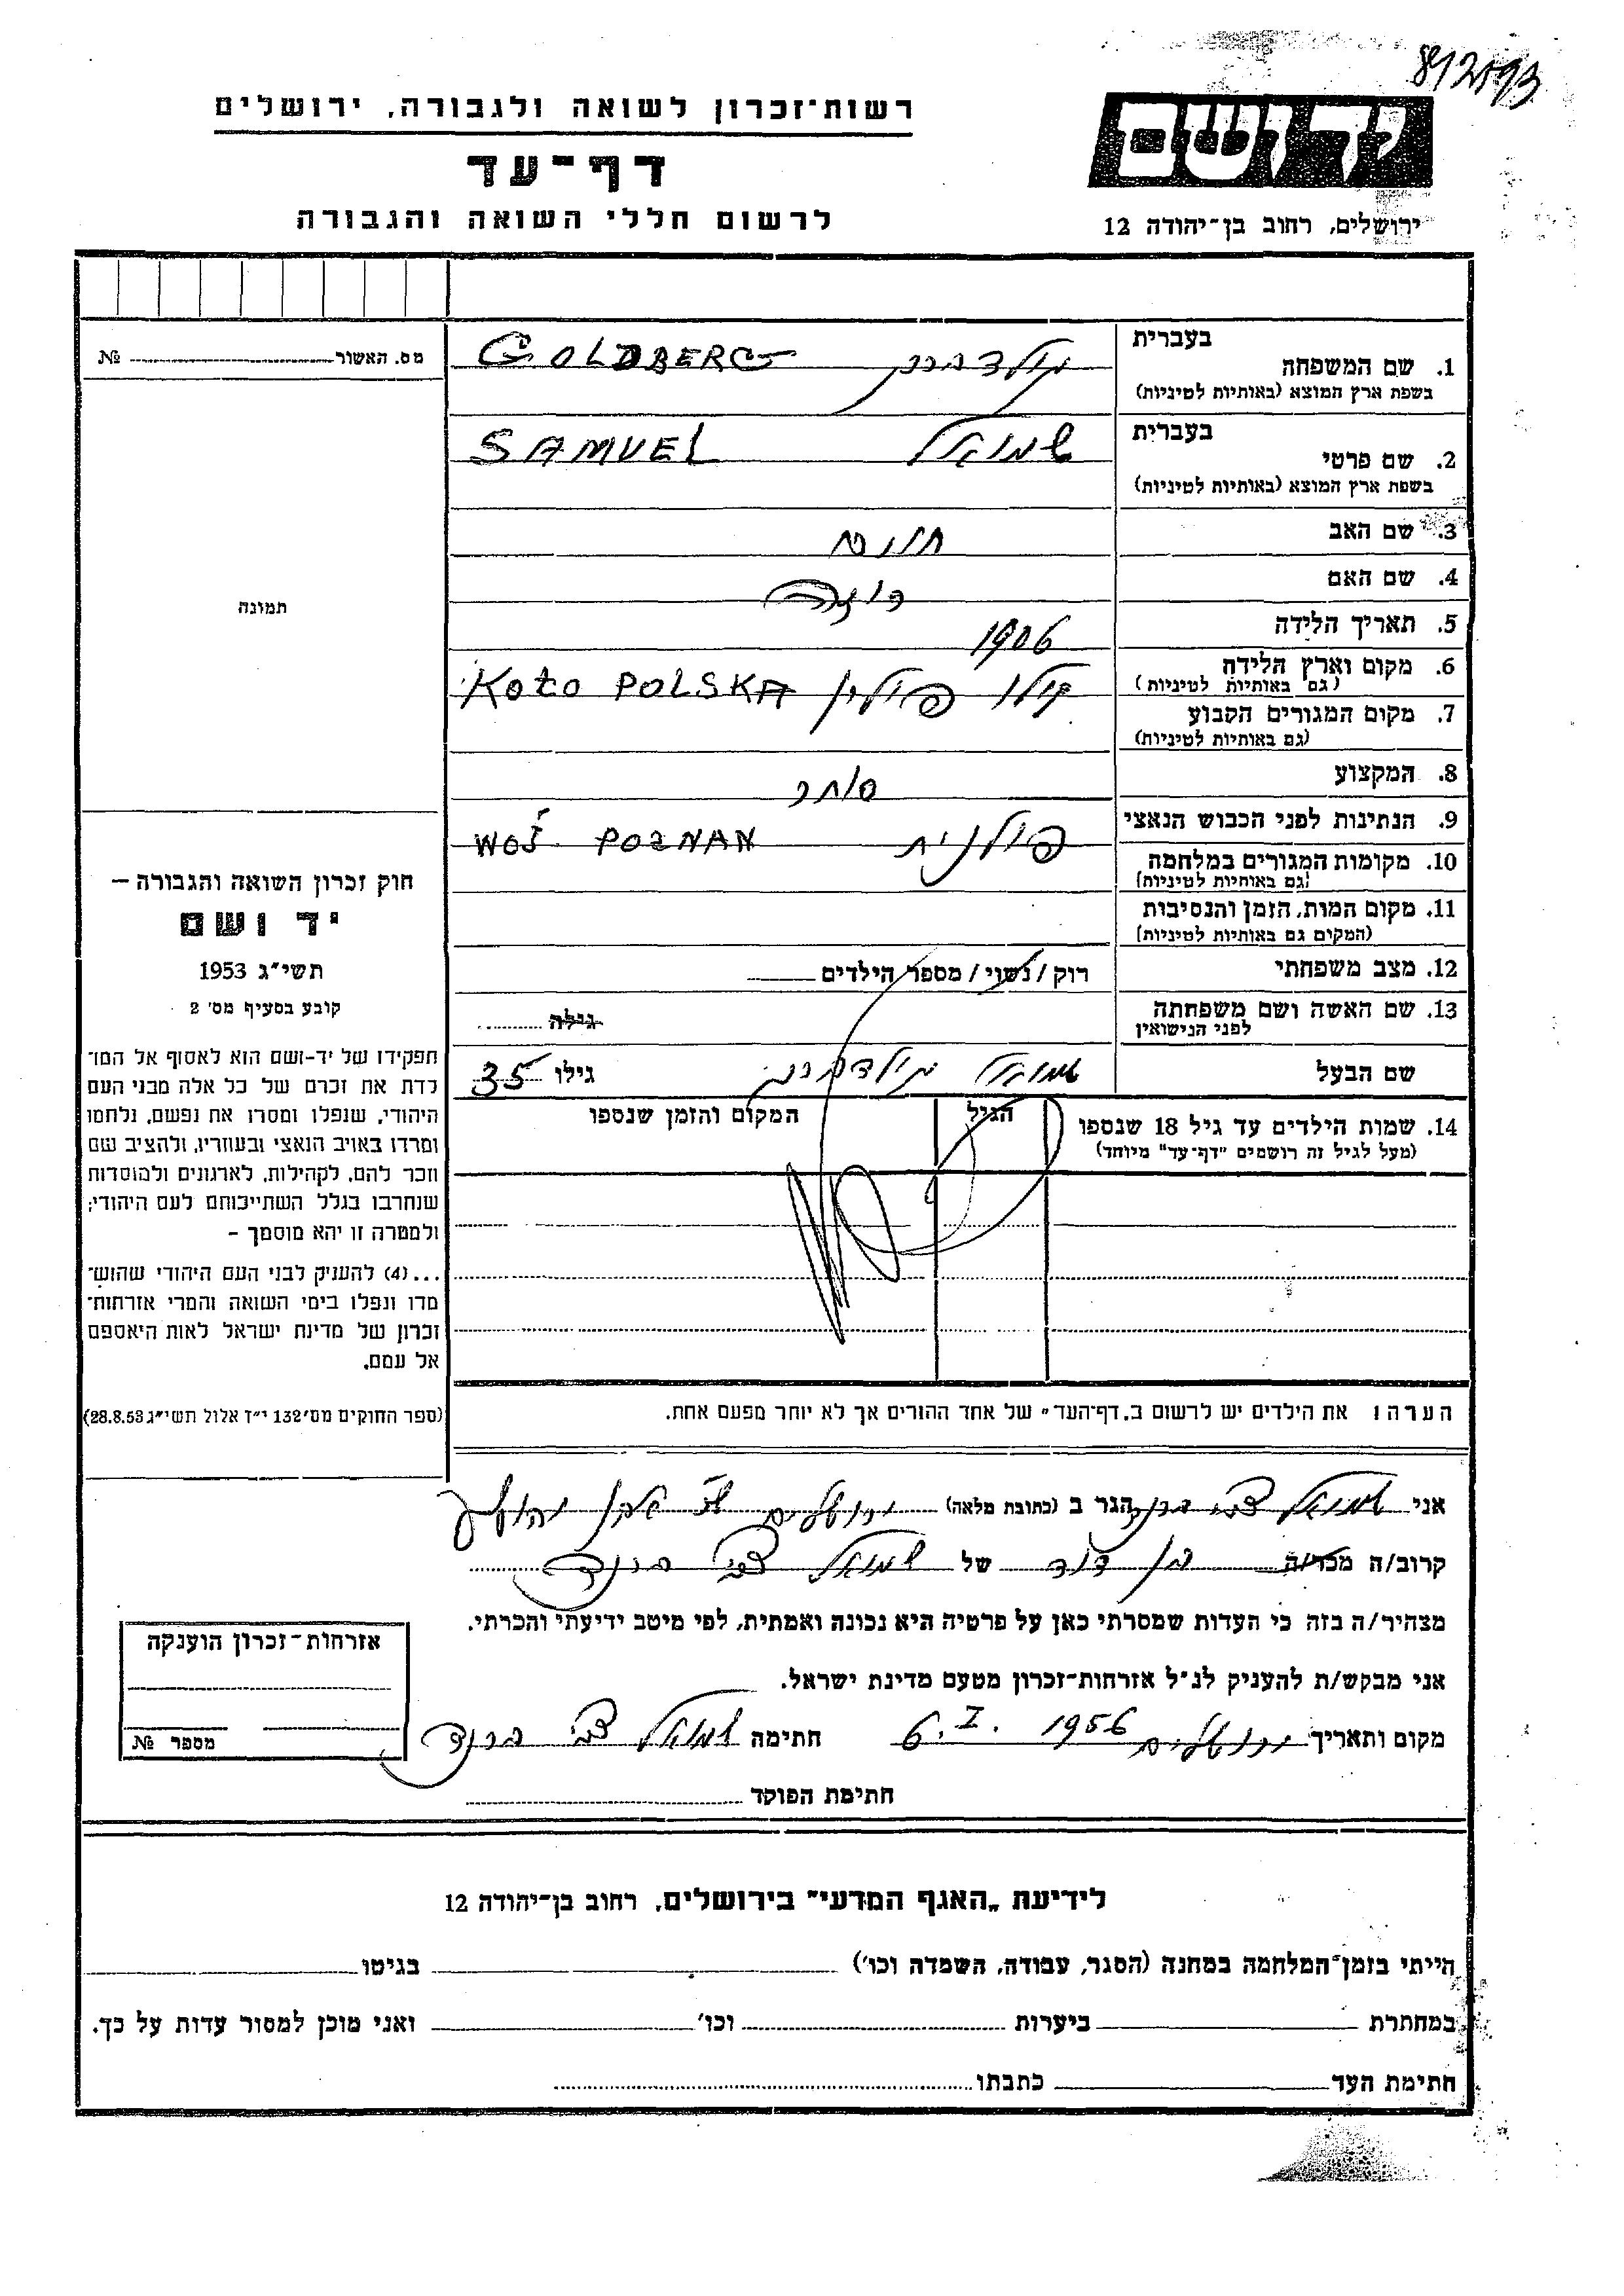 רשות־זכרון לשואה ולגבורה, ירושלים
דף-עד
לרשום חללי השואה והגבורה
ידושם
ירושלים, רחוב בן־יהודה 12
מס. האשור № 
תמונה
חוק זכרון השואה והגבורה –
יד ושם
תשי״ג 1953
קובע בסעיף מס׳ 2
תפקידו של יד-ושם הוא לאסוף אל המו־
לדת את זכרם של כל אלה מבני העם
היהודי, שנפלו ומסרו את נפשם, נלחמו
ומרדו באויב הנאצי ובעוזריו, ולהציב שם
וזכר להם, לקהילות, לארגונים ולמוסדות
שנחרבו בגלל השתייכותם לעם היהודי;
ולמטרה זו יהא מוסמך –
...(4) להעניק לבני העם היהודי שהוש־
מדו ונפלו בימי השואה והמרי אזרחות־
זכרון של מדינת ישראל לאות היאספם
אל עמם.
(ספר החוקים מס׳ 132 י״ז אלול תשי״ג 28.8.53)
בעברית
1. שם המשפחה גולדברג GOLDBERG
בשפת ארץ המוצא (באותיות לטיניות)
בעברית
2. שם פרטי שמואל SAMUEL
בשפת ארץ המוצא (באותיות לטיניות)
3. שם האב
4. שם האם
5. תאריך הלידה 1906
6. מקום וארץ הלידה קולו פולין KOŁO POLSKA
(גם באותיות לטיניות)
7. מקום המגורים הקבוע
(גם באותיות לטיניות)
8. המקצוע סוחר
9. הנתינות לפני הכבוש הנאצי פולנית WOJ. POZNAN
10. מקומות המגורים במלחמה
(גם באותיות לטיניות)
11. מקום המות, הזמן והנסיבות
(המקום גם באותיות לטיניות)
12. מצב משפחתי רוק / נשוי / מספר הילדים
13. שם האשה ושם משפחתה גילה
לפני הנישואין
שם הבעל שמואל גולדברג גילו 35
14. שמות הילדים עד גיל 18 שנספו הגיל המקום והזמן שנספו
(מעל לגיל זה רושמים "דף־עד" מיוחד)
הערה: את הילדים יש לרשום ב„דף־העד״ של אחד ההורים אך לא יותר מפעם אחת.
אני שמואל צבי ברנד הגר ב (כתובת מלאה) ירושלים
קרוב/ה מכר/ה בן דוד של שמואל צבי ברנד
מצהיר/ה בזה כי העדות שמסרתי כאן על פרטיה היא נכונה ואמתית, לפי מיטב ידיעתי והכרתי.
אני מבקש/ת להעניק לנ״ל אזרחות-זכרון מטעם מדינת ישראל.
מקום ותאריך ירושלים 6. I. 1956 חתימה שמואל צבי ברנד
חתימת הפוקד
אזרחות-זכרון הוענקה
מספר №
לידיעת „האגף המדעי״ בירושלים, רחוב בן־יהודה 12
הייתי בזמן־המלחמה במחנה (הסגר, עבודה, השמדה וכו׳) בגיטו
במחתרת ביערות וכו׳ ואני מוכן למסור עדות על כך.
חתימת העד כתבתו